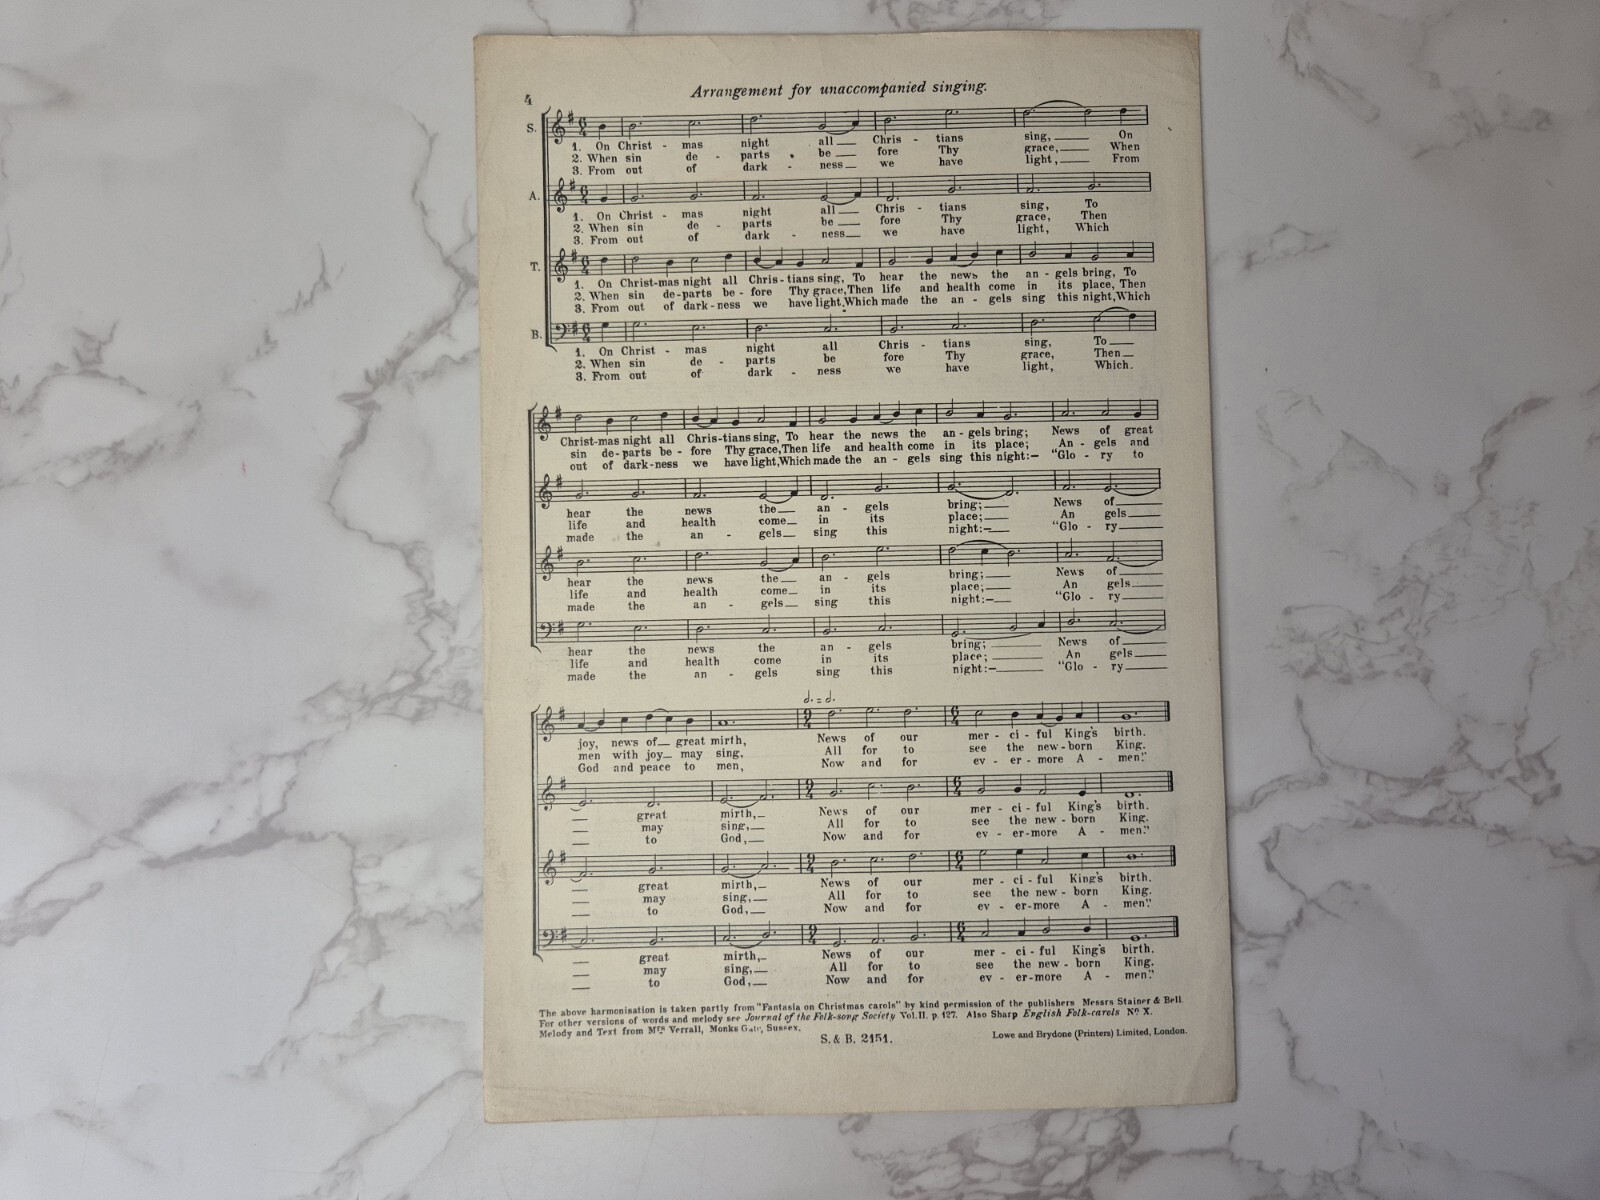 Arrangement for unaccompanied singing.
4
S.
1. On Christ - mas night all Chris - tians sing, On
2. When sin de - parts be fore Thy grace, When
3. From out of dark - ness we have light, From
A.
1. On Christ - mas night all Chris - tians sing, To
2. When sin de - parts be - fore Thy grace, Then
3. From out of dark - ness we have light, Which
T.
1. On Christ-mas night all Chris-tians sing, To hear the news the an - gels bring, To
2. When sin de-parts be - fore Thy grace, Then life and health come in its place, Then
3. From out of dark-ness we have light, Which made the an - gels sing this night, Which
B.
1. On Christ - mas night all Chris - tians sing, To
2. When sin de - parts be fore Thy grace, Then
3. From out of dark - ness we have light, Which.
Christ-mas night all Chris-tians sing, To hear the news the an-gels bring; News of great
sin de-parts be - fore Thy grace, Then life and health come in its place; An - gels and
out of dark-ness we have light, Which made the an - gels sing this night:- "Glo - ry to
hear the news the an - gels bring; News of
life and health come in its place; An gels
made the an - gels sing this night:- "Glo - ry
hear the news the an - gels bring; News of
life and health come in its place; An gels
made the an - gels sing this night:- "Glo - ry
hear the news the an - gels bring; News of
life and health come in its place; An gels
made the an - gels sing this night:- "Glo - ry
joy, news of great mirth, News of our mer - ci - ful King's birth.
men with joy may sing, All for to see the new-born King.
God and peace to men, Now and for ev - er-more A - men."
great mirth, News of our mer - ci - ful King's birth.
may sing, All for to see the new - born King.
to God, Now and for ev - er-more A - men."
great mirth, News of our mer - ci - ful King's birth.
may sing, All for to see the new - born King.
to God, Now and for ev - er-more A - men."
great mirth, News of our mer - ci - ful King's birth.
may sing, All for to see the new - born King.
to God, Now and for ev - er-more A - men."
The above harmonisation is taken partly from "Fantasia on Christmas carols" by kind permission of the publishers Messrs Stainer & Bell.
For other versions of words and melody see Journal of the Folk-song Society Vol. II. p. 127. Also Sharp English Folk-carols No. X.
Melody and Text from Mrs Verrall, Monks Gate, Sussex.
S. & B. 2151.
Lowe and Brydone (Printers) Limited, London.